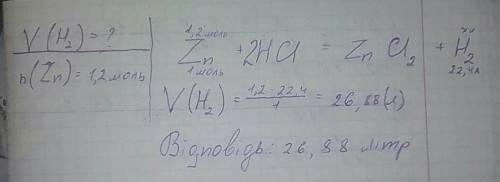 V(H₂) = ?
n(Zn) = 1,2 моль
1,2 моль x л
Zn + 2HCl = ZnCl₂ + H₂
1 моль 22,4 л
V(H₂) = 1,2 · 22,4 / 1 = 26,88 (л)
Відповідь: 26,88 літр